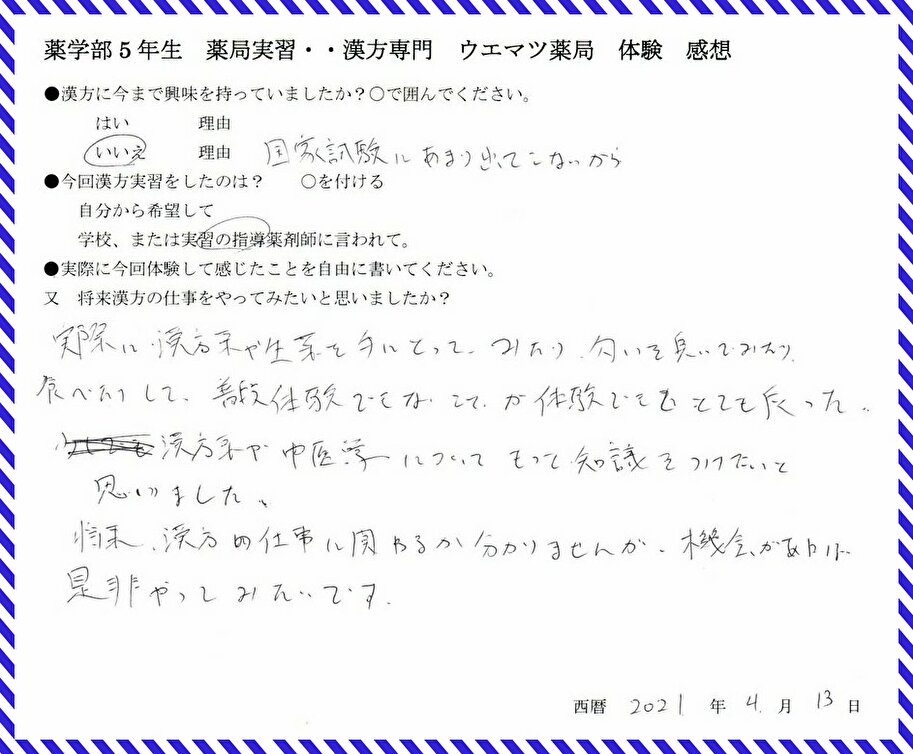 薬学部5年生 薬局実習・・漢方専門 ウエマツ薬局 体験 感想
●漢方に今まで興味を持っていましたか?○で囲んでください。
はい 理由
いいえ 理由 国家試験にあまり出てこないから
●今回漢方実習をしたのは? ○を付ける
自分から希望して
学校、または実習の指導薬剤師に言われて。
●実際に今回体験して感じたことを自由に書いてください。
又 将来漢方の仕事をやってみたいと思いましたか?
実際に漢方薬や生薬を手にとって、みたり、匂いを臭いでみたり、
食べたりして、普段体験できないことが体験できてとても良かった。
漢方薬や中医学についてもっと知識をつけたいと
思いました。
将来、漢方の仕事に関わるか分かりませんが、機会があれば
是非やってみたいです。
西暦 2021 年 4 月 13 日